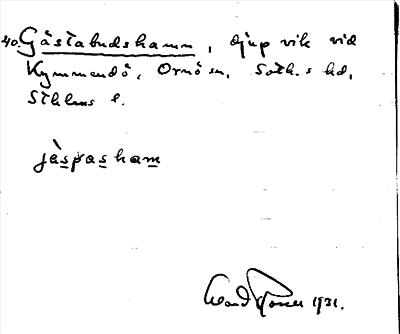 40. Gästabudshamn, djup vik vid
Kymmendö, Ornö sn, Soth.s hd,
Sthlms l.
jàspasham
1931.